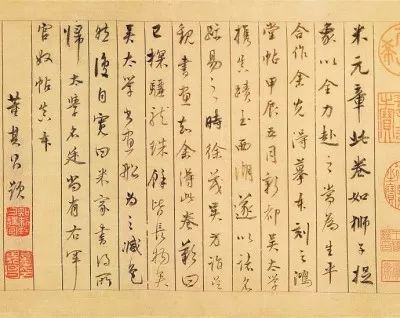 米元章此卷如獅子捉
象以全力赴之當為生平
合作余先得摹本刻之鴻
堂帖甲辰五月新都吳太學
携真蹟至西湖遂以諸名
跡易之時徐茂吳方詣吳
觀書畫知余得此卷歎曰
已探驪龍珠餘皆長物矣
吳太學書畫船為之減色
然復自寬曰米家書得所
歸太學名廷尚有右軍
官奴帖真本
董其昌題